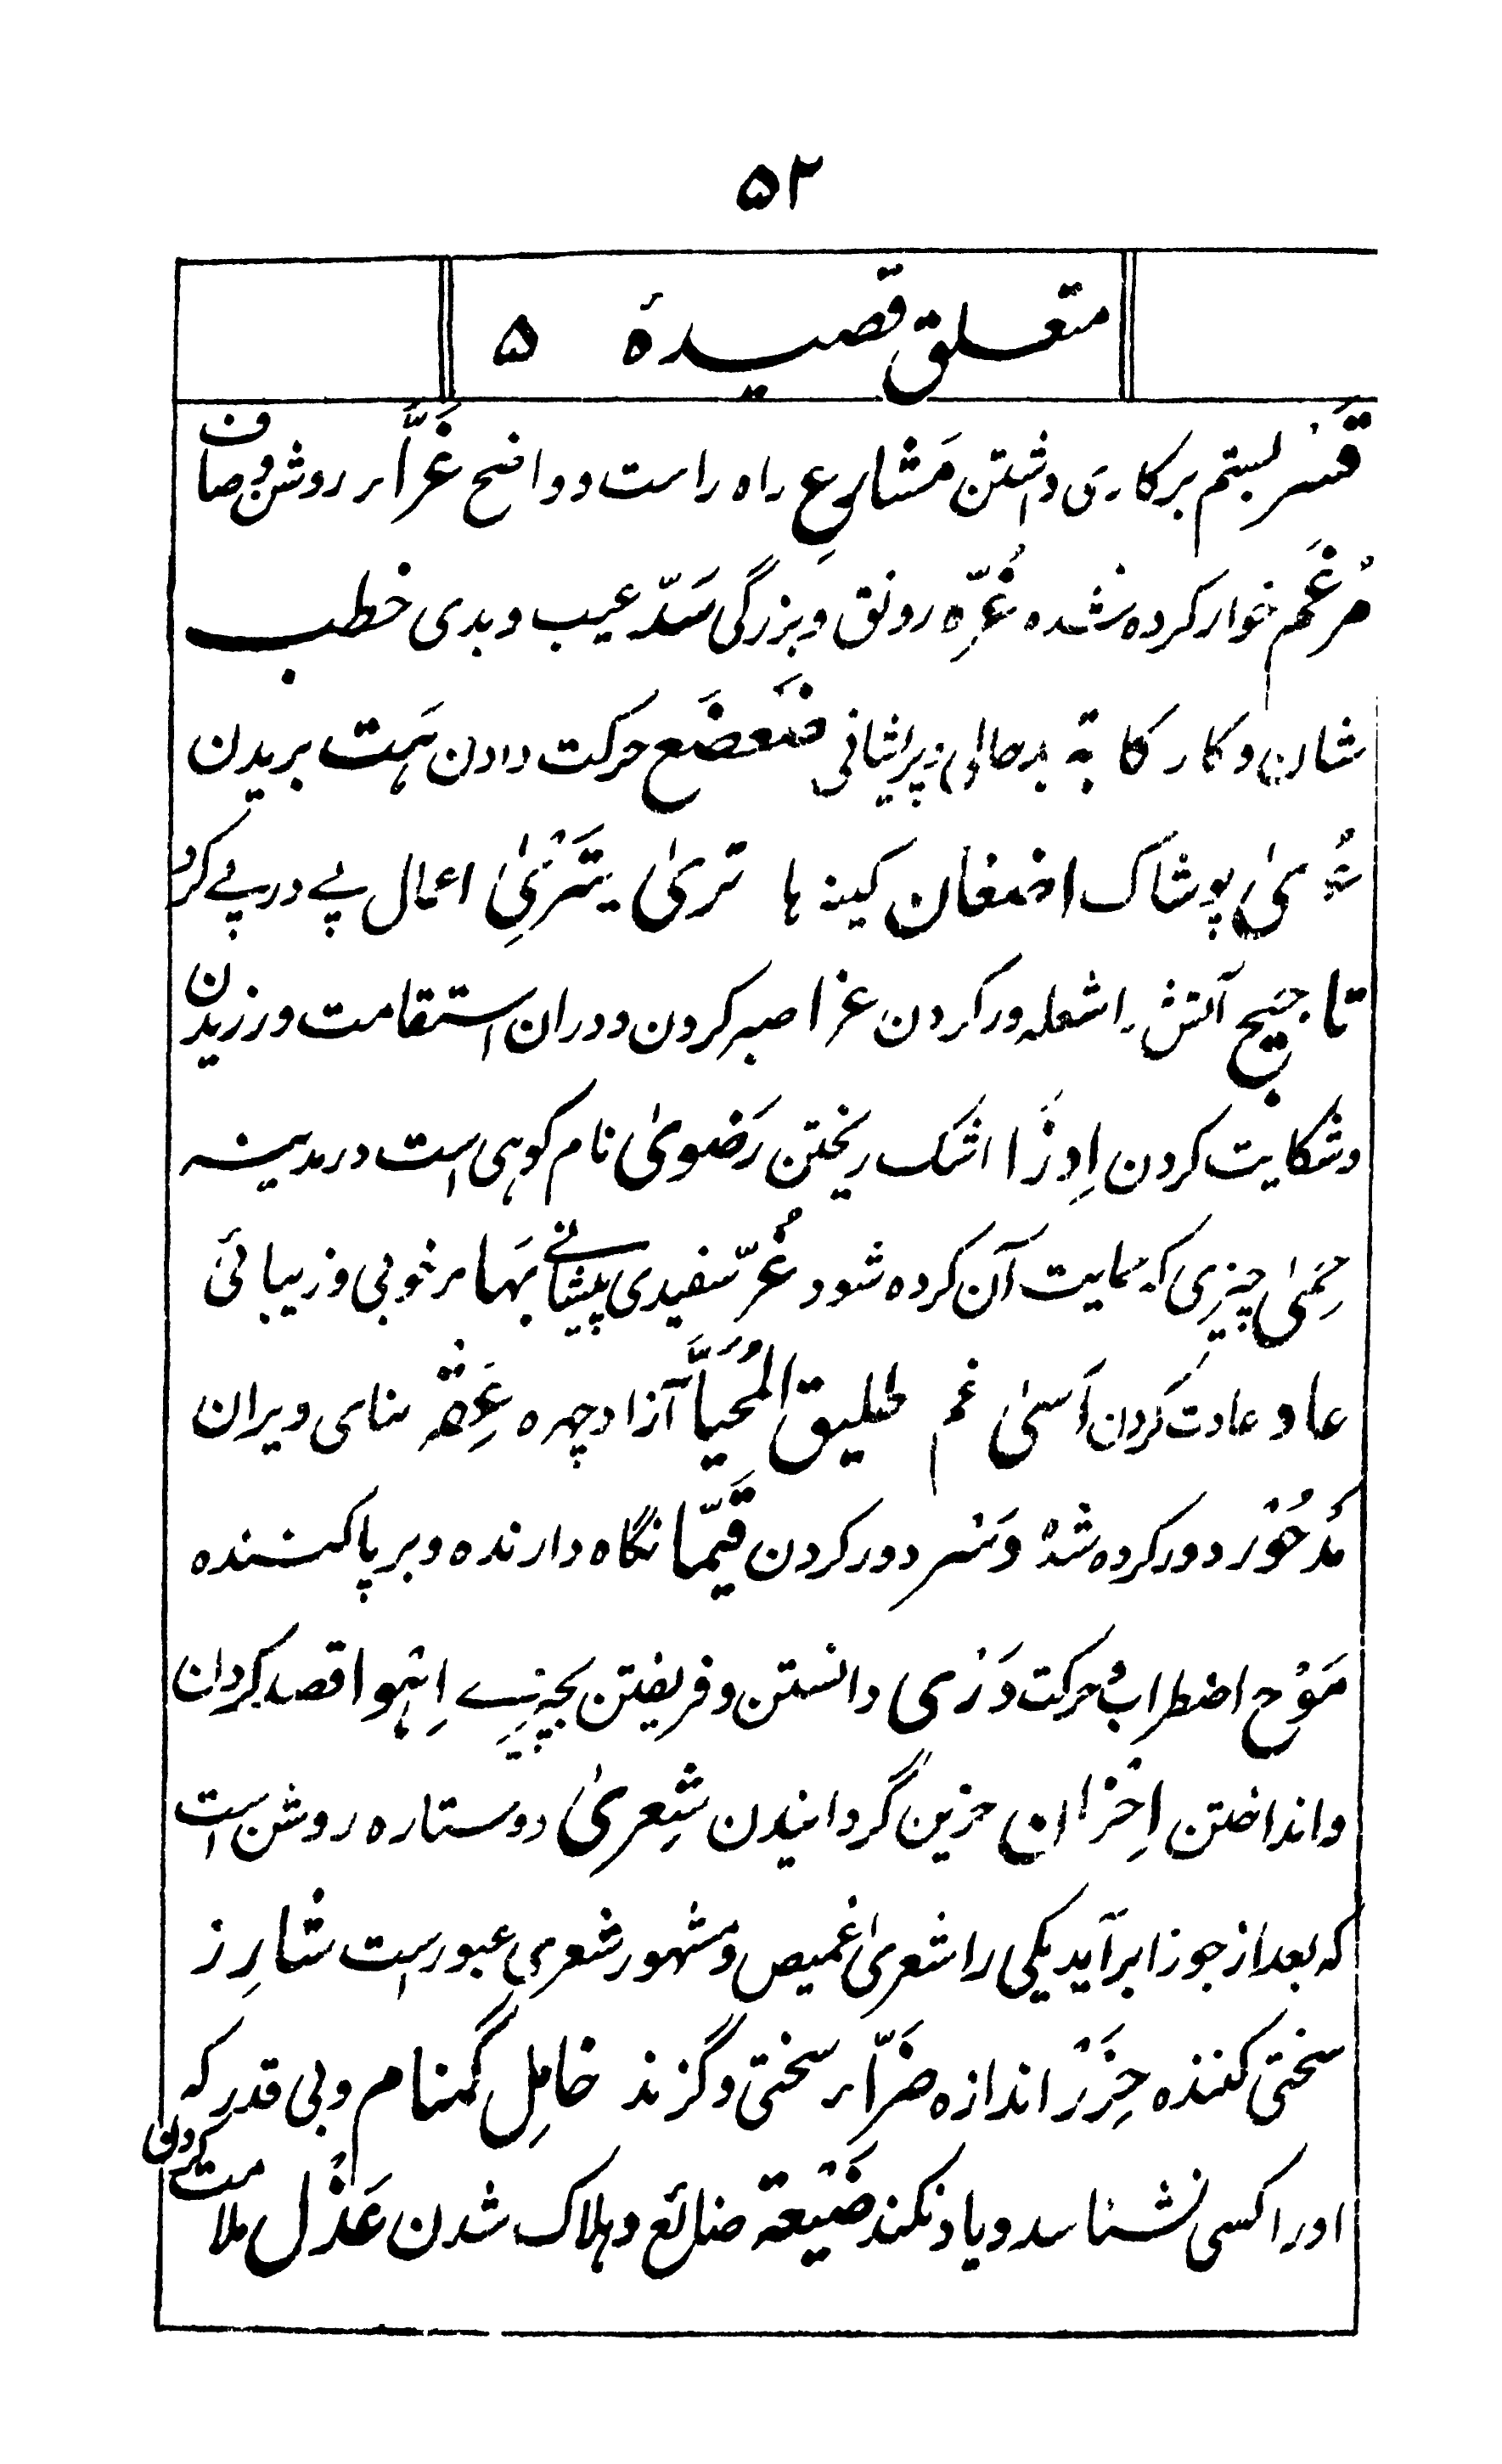 ۵۲
متعلق قصیدۂ ۵
قَسْر بستم بر کاری داشتن مَشارِع راہ راست و واضح غَرَّاء روشن و صاف
مُرغَم خوار کردہ شدہ غُرِّہ رونق و بزرگی سَدّ عیب و بدی خطب
شان و کار کابۃ بدحالی و پریشانی ضَعضَع حرکت دادن ہَت بریدن
پوشاک اضغان کینہ ہا تریٰ یَتَریٰ اعمال پے در پے کرد
تاجیج آتش را شعلہ ور کردن عزا صبر کردن و دران استقامت ورزیدن
و شکایت کردن اِدرَا اشک ریختن رَضویٰ نام کوہی است در مدینہ
حِمیٰ چیزی کہ حمایت آن کردہ شود غُرّ سفیدی پیشانے بَہاء خوبی و زیبائی
عاد عادت کردن اَسیٰ غم طلیق المُحَیَّا آزاد چہرہ بنای ویران
مَدحُوْر دور کردہ شدہ دور کردن قَیِّمًا نگاہ دارندہ و برپا کنندہ
مَوْج اضطراب و حرکت دَرْی دانستن و فریفتن بچیزے اِہْوا قصد کردن
و انداختن اِحْزان حزین گردانیدن شِعریٰ دو ستارہ روشن است
کہ بعد از جوزا برآید یکی را شعریٰ غمیص و مشہور شعری عبور است شارِز
سختی کنندہ حِزَرْ اندازہ ضَرَّاء سختی و گزند خامِل گمنام و بی قدر کہ
اورا کسی نشناسد و یاد نکند ضَیْعۃ ضائع و ہلاک شدن عَذْل ملامت کردن